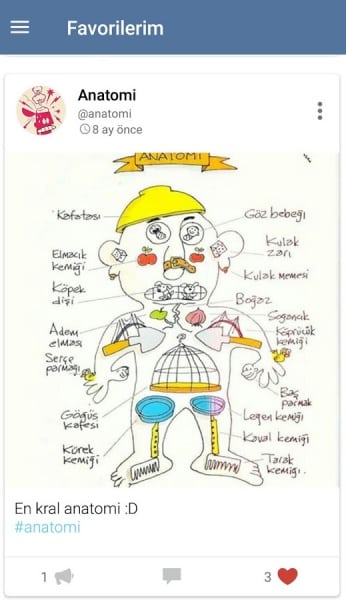 Favorilerim
Anatomi
@anatomi
8 ay önce
ANATOMİ
Kafatası
Göz bebeği
Elmacık
kemiği
Kulak
zarı
Köpek
dişi
Kulak Memesi
Boğaz
Adem
elması
Soğancık
Köprücük
kemiği
Serçe
parmağı
Baş
parmak
Göğüs
kafesi
Leğen kemiği
Kürek
kemiği
Kaval kemiği
Tarak
kemiği.
En kral anatomi :D
#anatomi
1
3